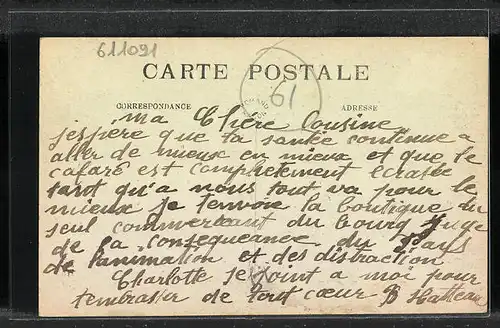 611091
CARTE POSTALE
61
CORRESPONDANCE
ADRESSE
ma Chère Cousine
j'espère que ta santée continue a
aller de mieux en mieux et que le
cafard est complètement ecrasée
tant qu'a nous tout va pour le
mieux je tenvoie la boutique du
seul commercant du bourg Juge
de la consequeance du Pays
de l'animation et des distraction
Charlotte se joint a moi pour
tembrasser de tout cœur B